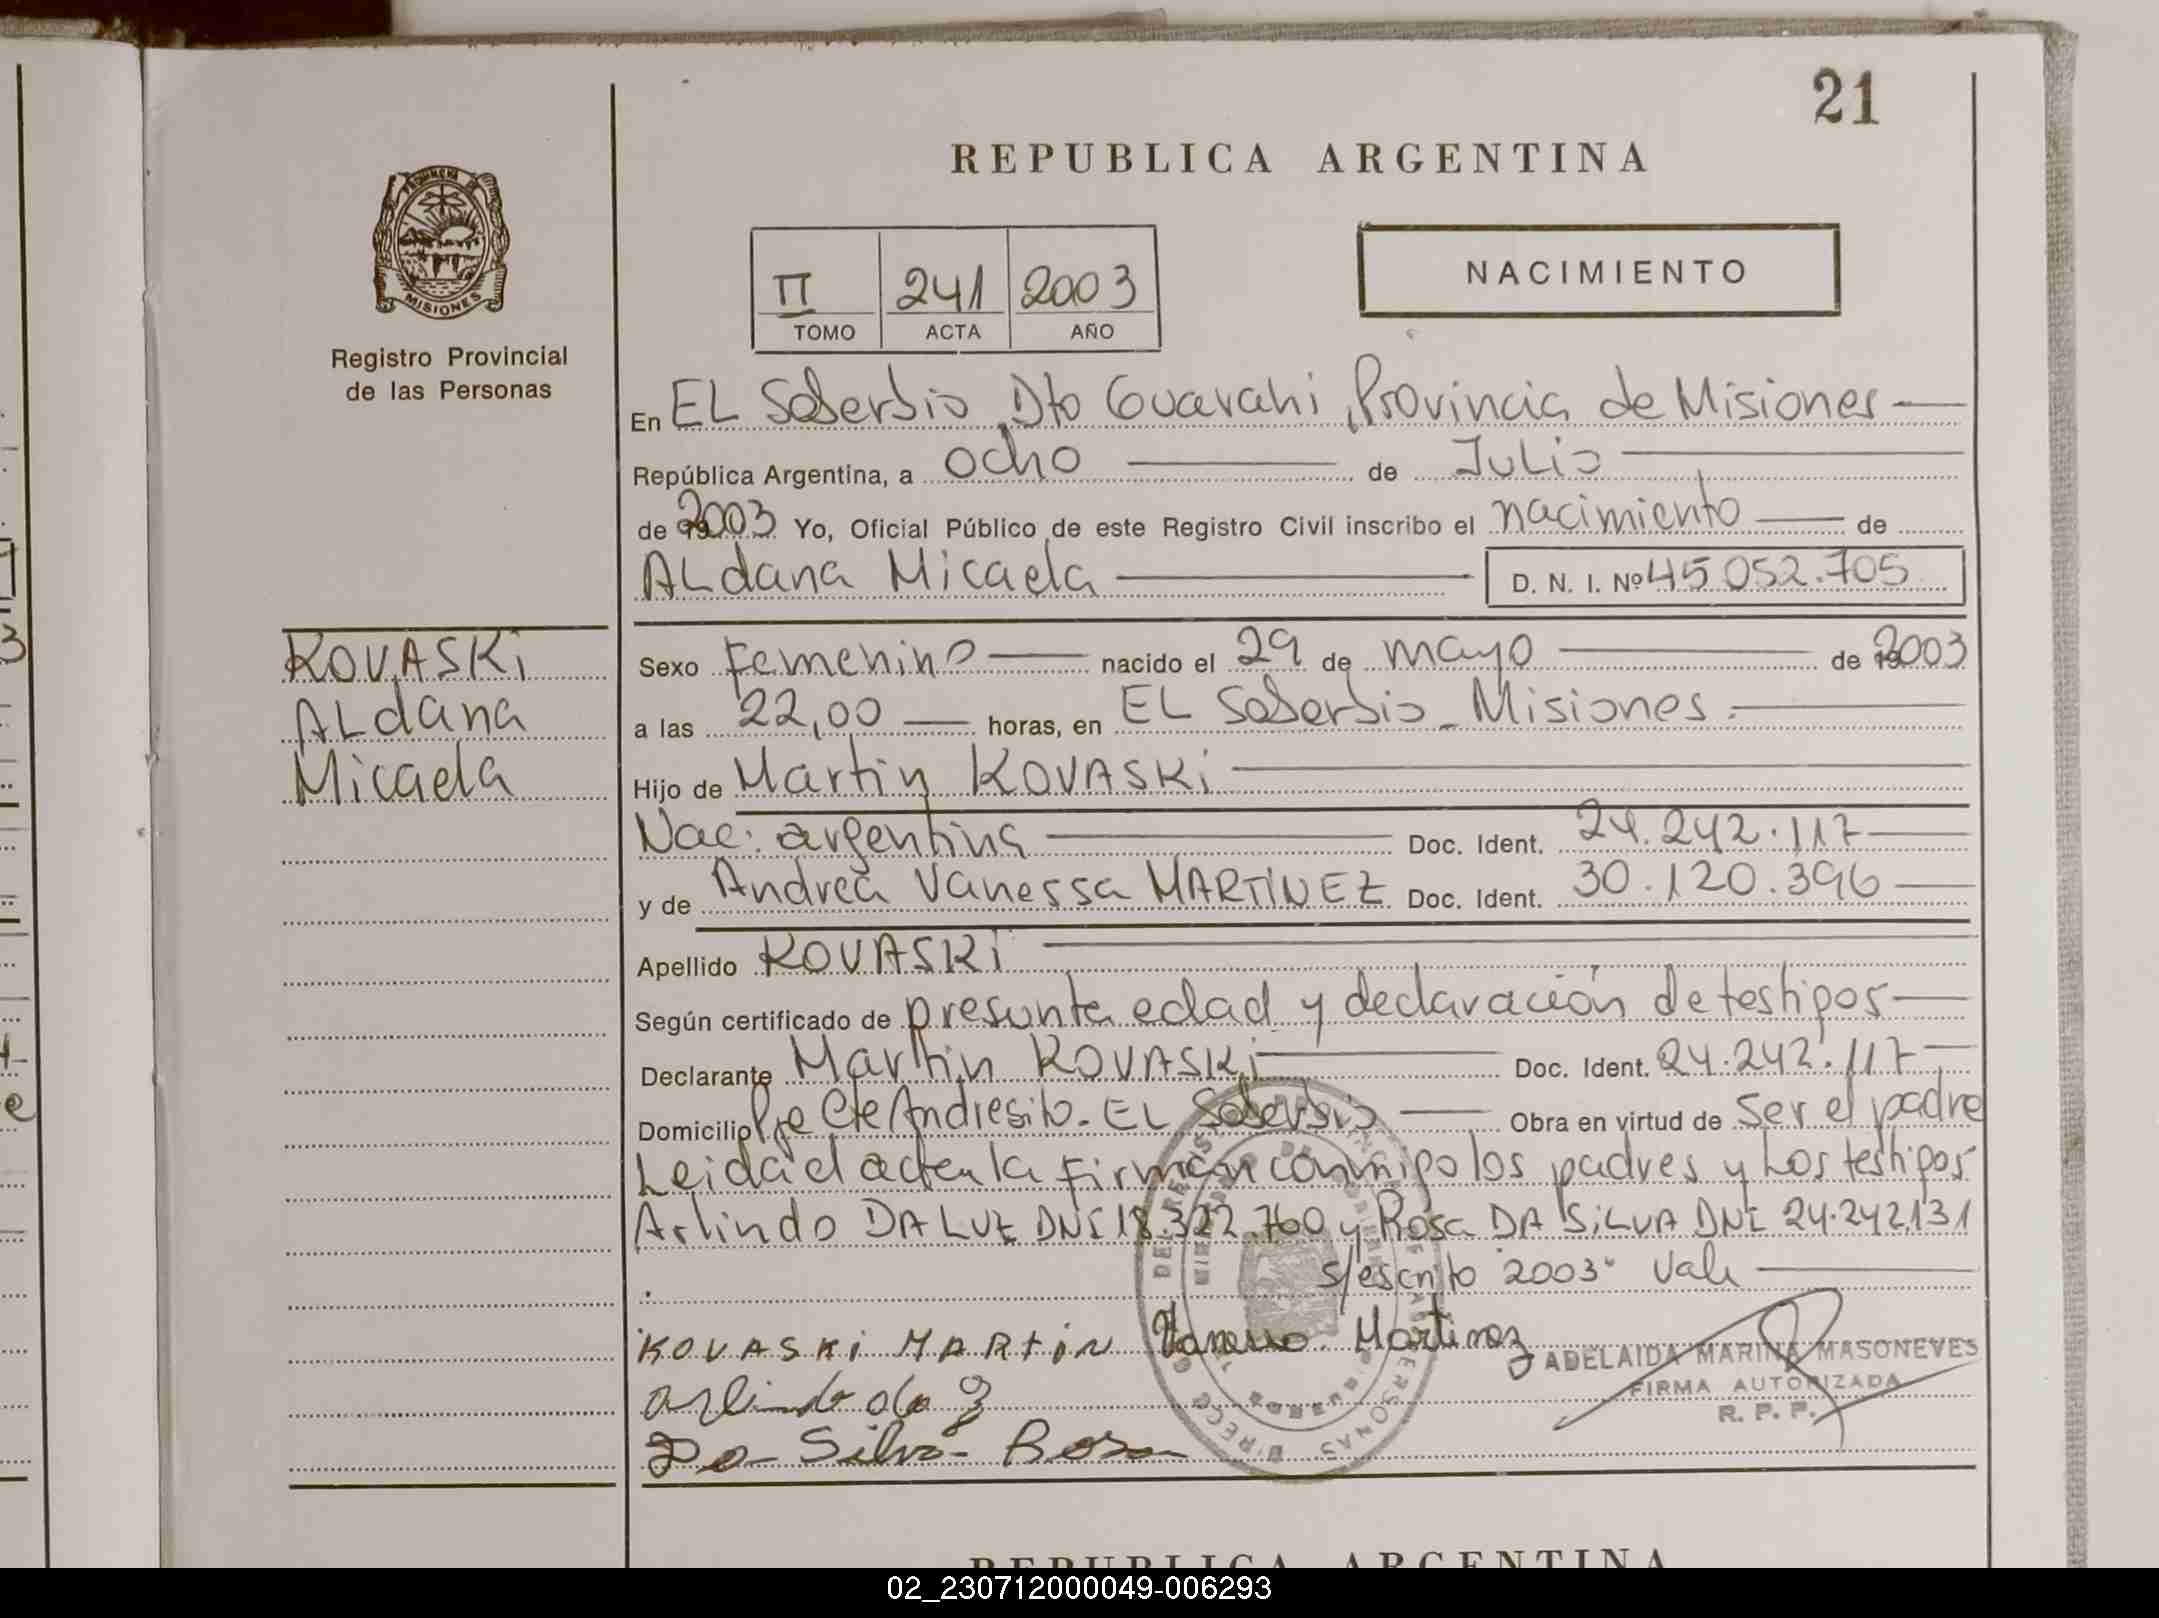 21
REPUBLICA ARGENTINA
PROVINCIA DE
MISIONES
Registro Provincial
de las Personas
II 241 2003
TOMO ACTA AÑO
NACIMIENTO
En EL Soberbio, Dto Guarahi, Provincia de Misiones
República Argentina, a ocho de Julio
de 2003 Yo, Oficial Público de este Registro Civil inscribo el nacimiento de
ALdana Micaela D. N. I. Nº 45.052.705
KOVASKi
ALdana
Micaela
Sexo Femenino nacido el 29 de mayo de 2003
a las 22,00 horas, en EL Soberbio - Misiones.
Hijo de Martin KOVASKi
Nac: argentina Doc. Ident. 24.242.117
y de Andrea Vanessa MARTINEZ Doc. Ident. 30.120.396
Apellido KOVASKi
Según certificado de presunta edad y declaración de testigos
Declarante Martin KOVASKi Doc. Ident. 24.242.117
Domicilio Pje Cte Andresito - EL Soberbio Obra en virtud de Ser el padre
Leida el acta la firman conmigo los padres y Los testigos
Arlindo DA LUZ DNI 18.322.760 y Rosa DA SiLVA DNI 24.242.131
s/escrito "2003" Vale
KOVASKi MARtiN Vanessa Martinez
ADELAIDA MARINA MASONEVES
FIRMA AUTORIZADA
R. P. P.
Arlindo da
Da Silva Rosa
REPUBLICA ARGENTINA
02_230712000049-006293